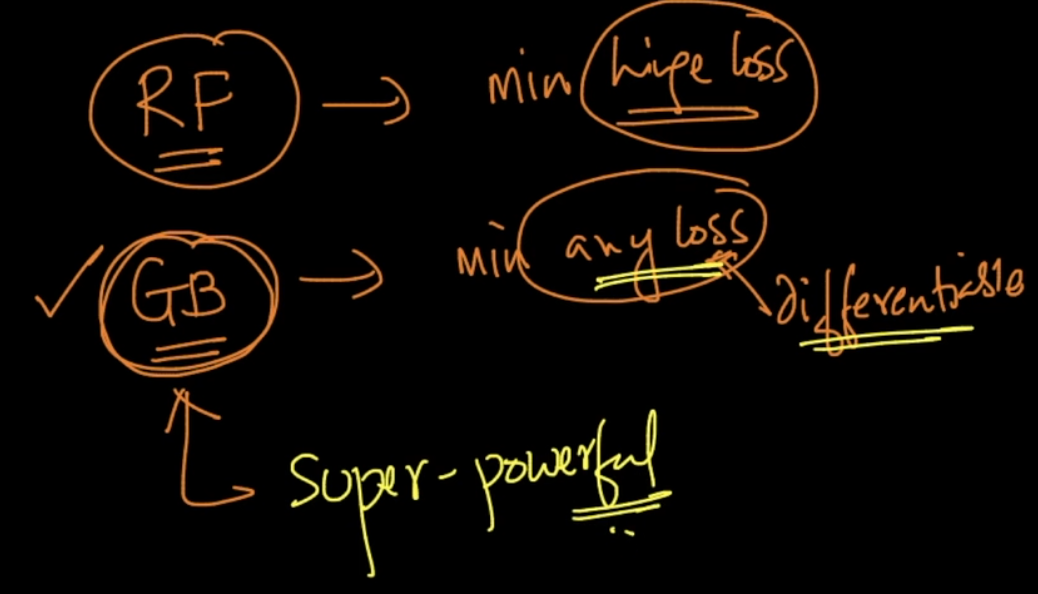 RF → min hinge loss
GB → min any loss
differentiable
super-powerful